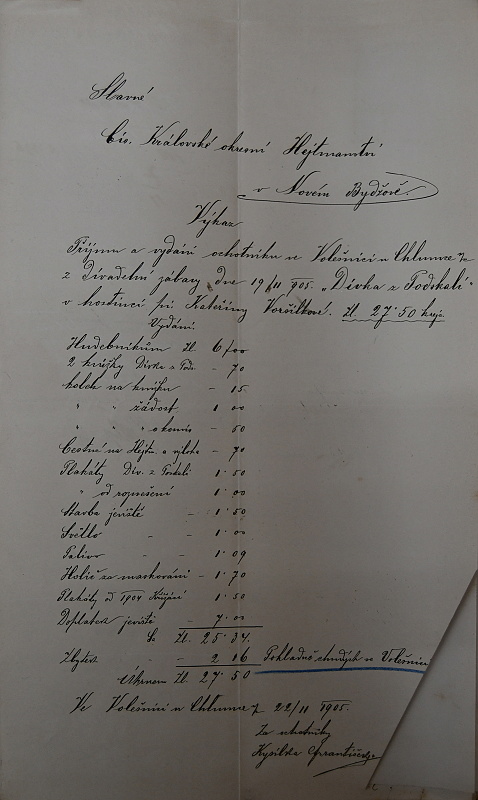 Slavné
Cís. Královské okresní Hejtmanství
v Novém Bydžově.
Výkaz
Příjmu a vydání ochotníku ve Volešnici u Chlumce n/c
z divadelní zábavy dne 19/II 905. „Dívka z Podskalí"
v hostinci při Kateřiny Vorčilkové. Zl. 27·50 kr.
Vydání
Hudebníkům Zl. 6/00
2 knížky Dívka z Pods. – 70
kolek na knížku – 15
" " žádost 1 00
" " – 50
Cestné na Hejtm. a výloha – 70
Plakáty Dív. z Poskalí 1·50
" od roznešení 1·00
Stavba jeviště – 1·50
Světlo – – 1·00
Palivo – – 1·09
Holič za maskování – 1·70
Plakáty od 1904 1·50
Doplatek jeviště – 7·00
Sa Zl. 25·34.
Zbytek – 2 16 Pokladně chudých ve Volešnici
Úhrnem Zl. 27·50
Ve Volešnici u Chlumce 22/II 1905.
Za ochotníky
Kysilka